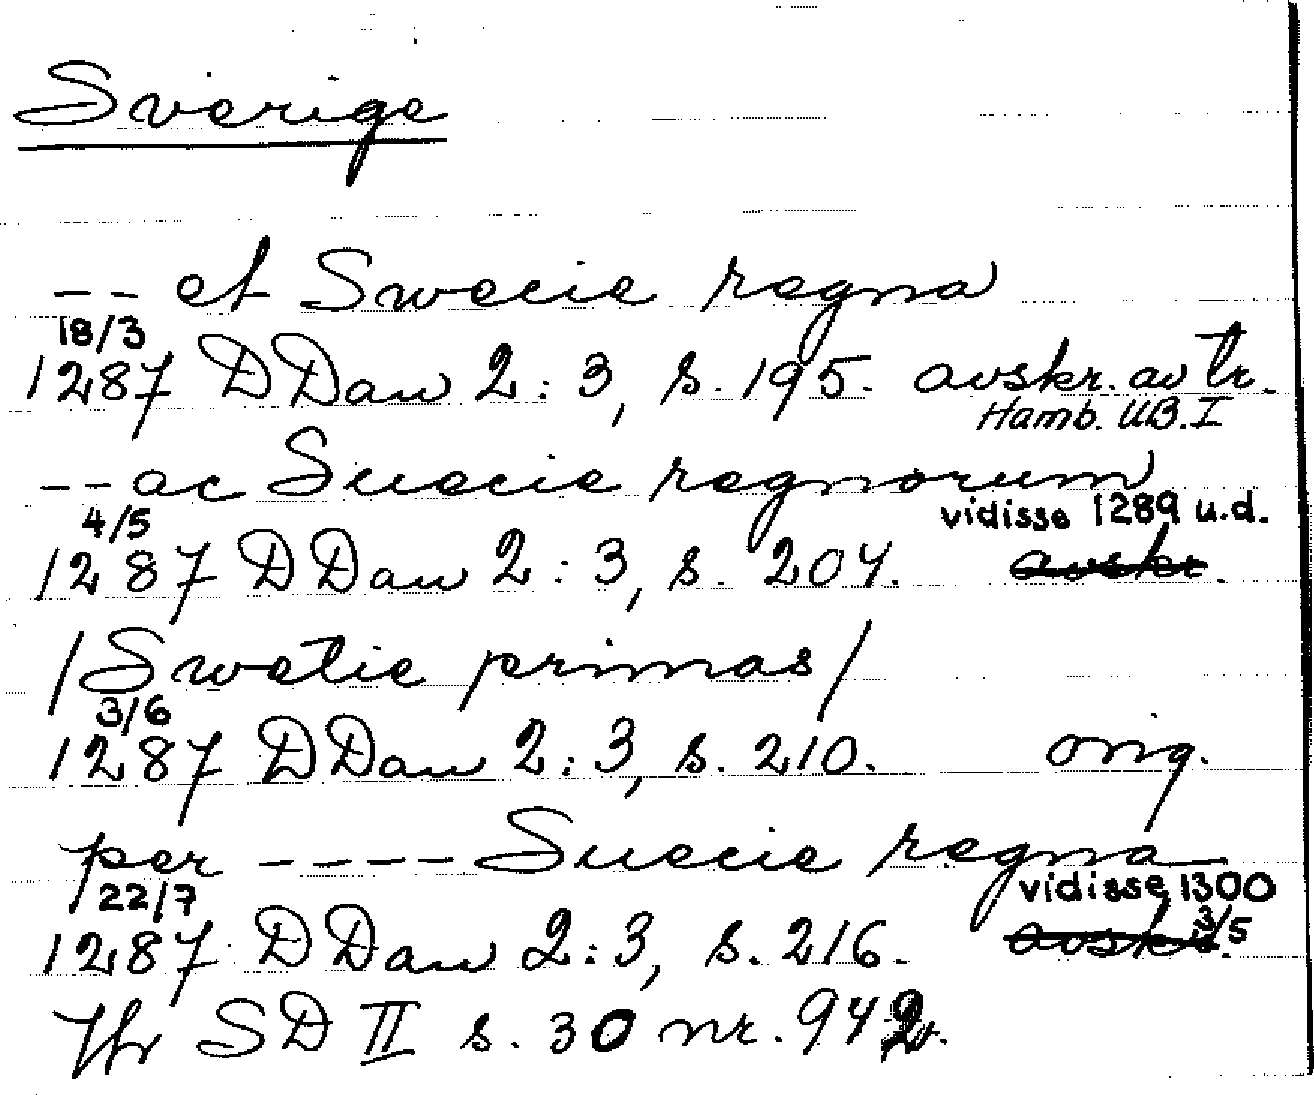 Sverige
-- et Swecie regna
18/3
1287 DDan 2:3, s. 195. avskr. av tr.
Hamb. UB. I
-- ac Suecie regnorum
4/5 vidisse 1289 u.d.
1287 DDan 2:3, s. 204. avskr.
/Swetie primas/
3/6
1287 DDan 2:3, s. 210. orig.
per ---- Suecie regna
22/7 vidisse 1300
3/5
1287 DDan 2:3, s. 216. avskr.
Jfr SD II s. 30 nr. 942.